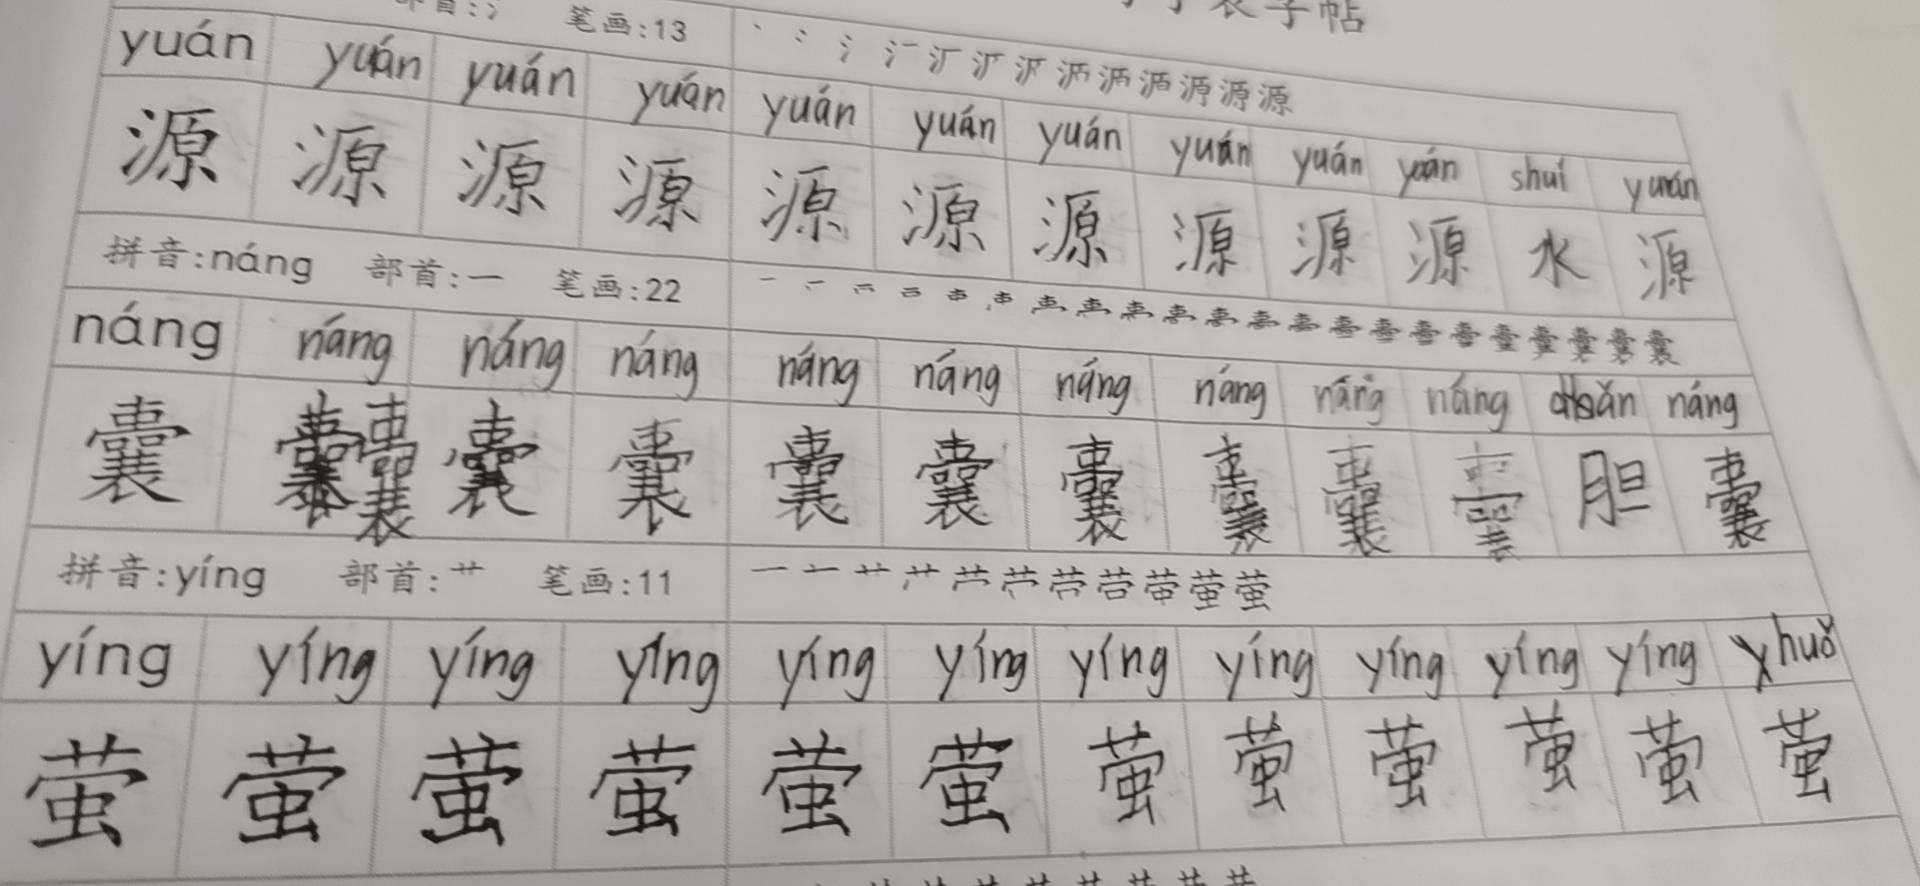 部首:氵 笔画:13 丶 氵 源
yuán yuán yuán yuán yuán yuán yuán yuán yuán yuán shuí yuán
源 源 源 源 源 源 源 源 源 源 水 源
拼音:náng 部首:一 笔画:22 一 囊
náng náng náng náng náng náng náng náng náng náng náng
囊 囊 囊 囊 囊 囊 囊 囊 囊 胆 囊
拼音:yíng 部首:艹 笔画:11 一 艹 萤
yíng yíng yíng yíng yíng yíng yíng yíng yíng yíng yíng huǒ
萤 萤 萤 萤 萤 萤 萤 萤 萤 萤 萤 萤